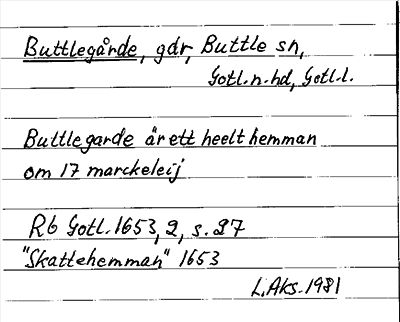 Buttlegårde, gdr, Buttle sn,
Gotl.n.hd, Gotl.l.
Buttlegarde är ett heelt hemman
om 17 marckeleij
Rb Gotl. 1653, 2, s. 27
"Skattehemman" 1653
L.Aks. 1981